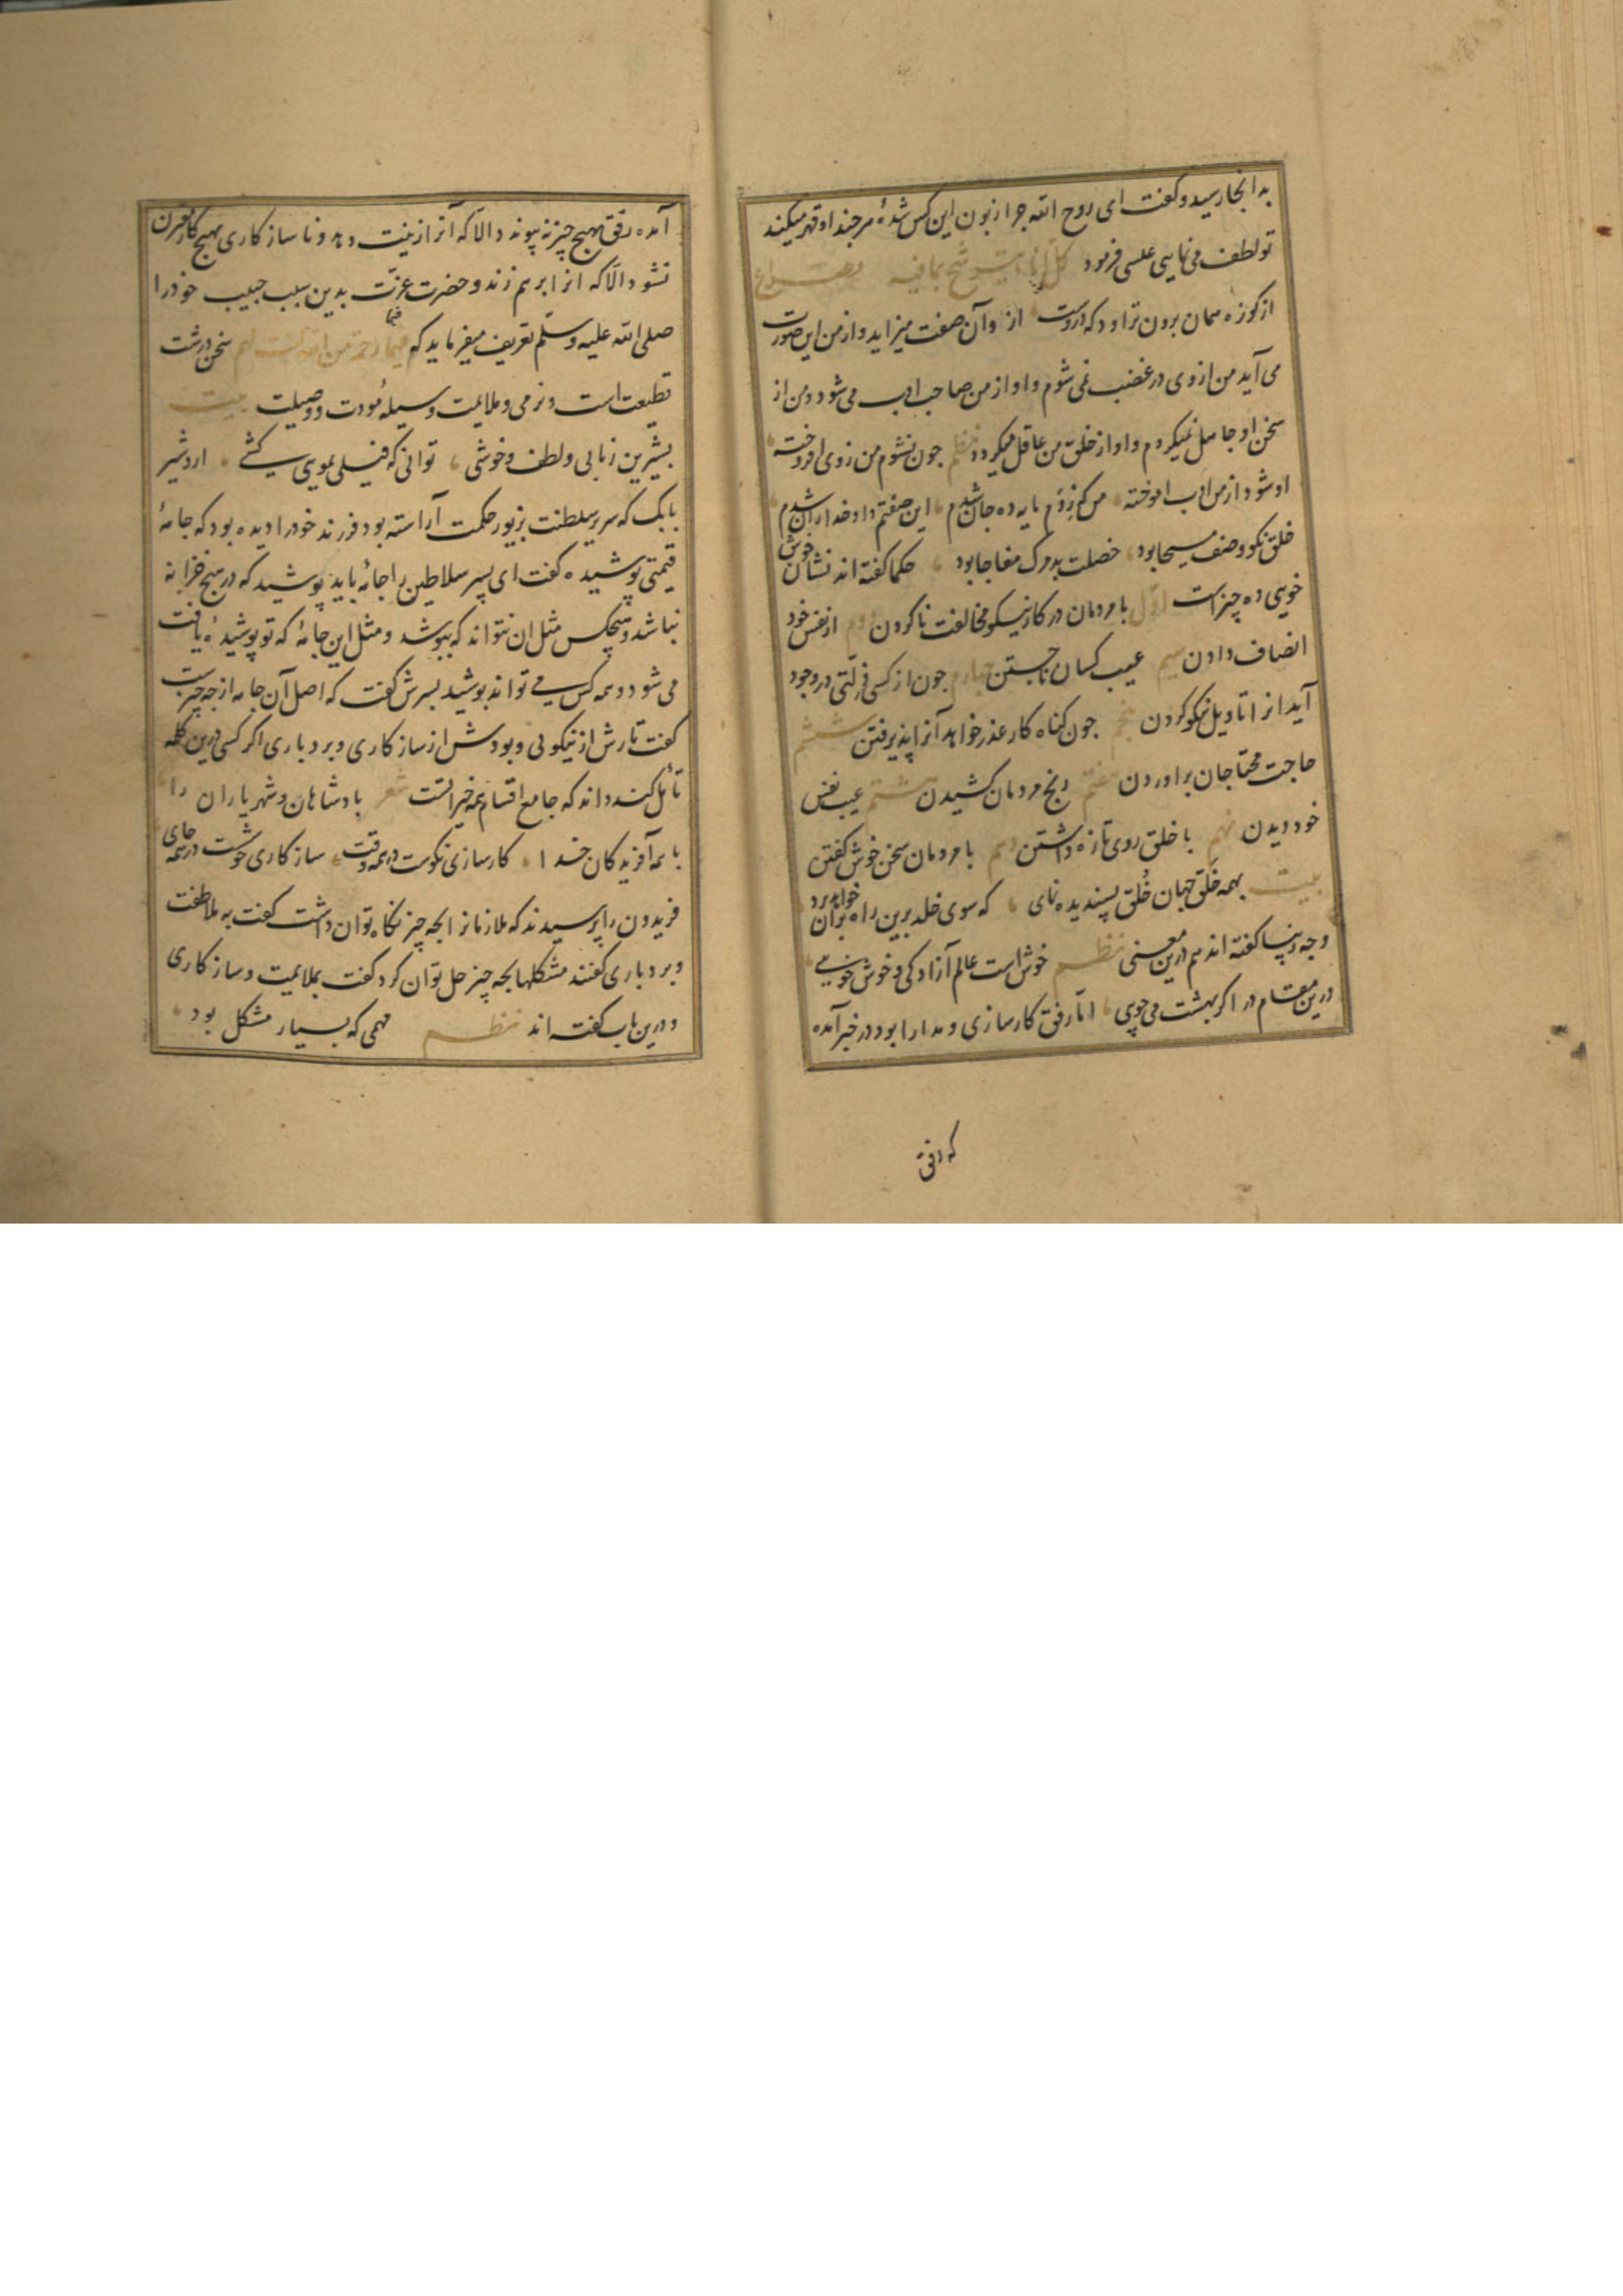 بدانجا رسید و گفت ای روح الله چرا زبون این کس شدهٔ هرچند او قهر میکند
تو لطف می نمایی عیسی فرمود کل اناء یترشح بما فیه مصراع
از کوزه همان برون تراود که دروست از و آن صفت میزاید و از من این صورت
می آید من از وی در غضب نمی شوم و او از من صاحب ادب می شود و من از
سخن او جاهل نمیکردم و او از خلق من عاقل میکردد نظم جون نشوم من ز وی افروخته
او شود از من ادب اموخته من که ز دم مایه ده جان شدم این صفتم داد خدا ران شدم
خلق نکو وصف مسیحا بود خصلت بد مرک مفاجا بود حکما کفته اند نشان خوش
خویی ده چیز است اول با مردمان در کار نیکو مخالفت ناکردن دوم از نفس خود
انصاف دادن سیم عیب کسان ناجستن چهارم جون از کسی زلتی در وجود
آید انرا تاویل نیکو کردن پنجم جون کناه کار عذر خواهد آنرا پذیرفتن ششم
حاجت محتاجان براوردن هفتم رنج مردمان کشیدن هشتم عیب نفس
خود دیدن نهم با خلق روی تازه داشتن دهم با مردمان سخن خوش کفتن
بیت بهمه خَلق جهان خُلق پسندیده نمای که سوی خلد برین راه بران خواهد برد
و چه زیبا کفته اند هم درین معنی نظم خوش است عالم آزادکی و خوش خویی
درین مقام در ا کر بهشت می جویی اما رفق کارسازی و مدارا بود در خبر آمده
که رفق
آمده رفق بهیچ چیز نه پیوندد الا که آنرا زینت دهد و ناسازکاری بهیچ کار مقرن
نشود الا که انرا برهم زند و حضرت عزت بدین سبب حبیب خود را
صلی الله علیه وسلم تعریف میفرماید که فبما رحمة من الله لنت لهم سخن درشت
قطیعت است و نرمی و ملایمت وسیلهٔ مودت و وصیلت بیت
بشیرین زبانی و لطف و خوشی توانی که فیلی بمویی کشی اردشیر
بابک که سریر سلطنت بزیور حکمت آراسته بود فرزند خود را دیده بود که جامهٔ
قیمتی پوشیده کفت ای پسر سلاطین را جامهٔ باید پوشید که در هیچ خزانه
نباشد و هیچکس مثل ان نتواند که بپوشد و مثل این جامهٔ که تو پوشیدهٔ یافت
می شود و همه کس می تواند پوشید پسرش کفت که اصل آن جامه از چه چیز است
کفت تارش از نیکویی و پودش از سازکاری و بردباری اکر کسی درین کلمه
تأمل کند داند که جامع اقسام همه خیر است شعر پادشاهان و شهریاران را
با همه آفریدکان خدا کارسازی نکوست در همه وقت سازکاری خوشست در همه جای
فریدون را پرسیدند که ملازمانرا بچه چیز نکاه توان داشت کفت به ملاطفت
و بردباری کفتند مشکلها بچه چیز حل توان کرد کفت بملایمت و سازکاری
و درین باب کفته اند نظم مهمی که بسیار مشکل بود